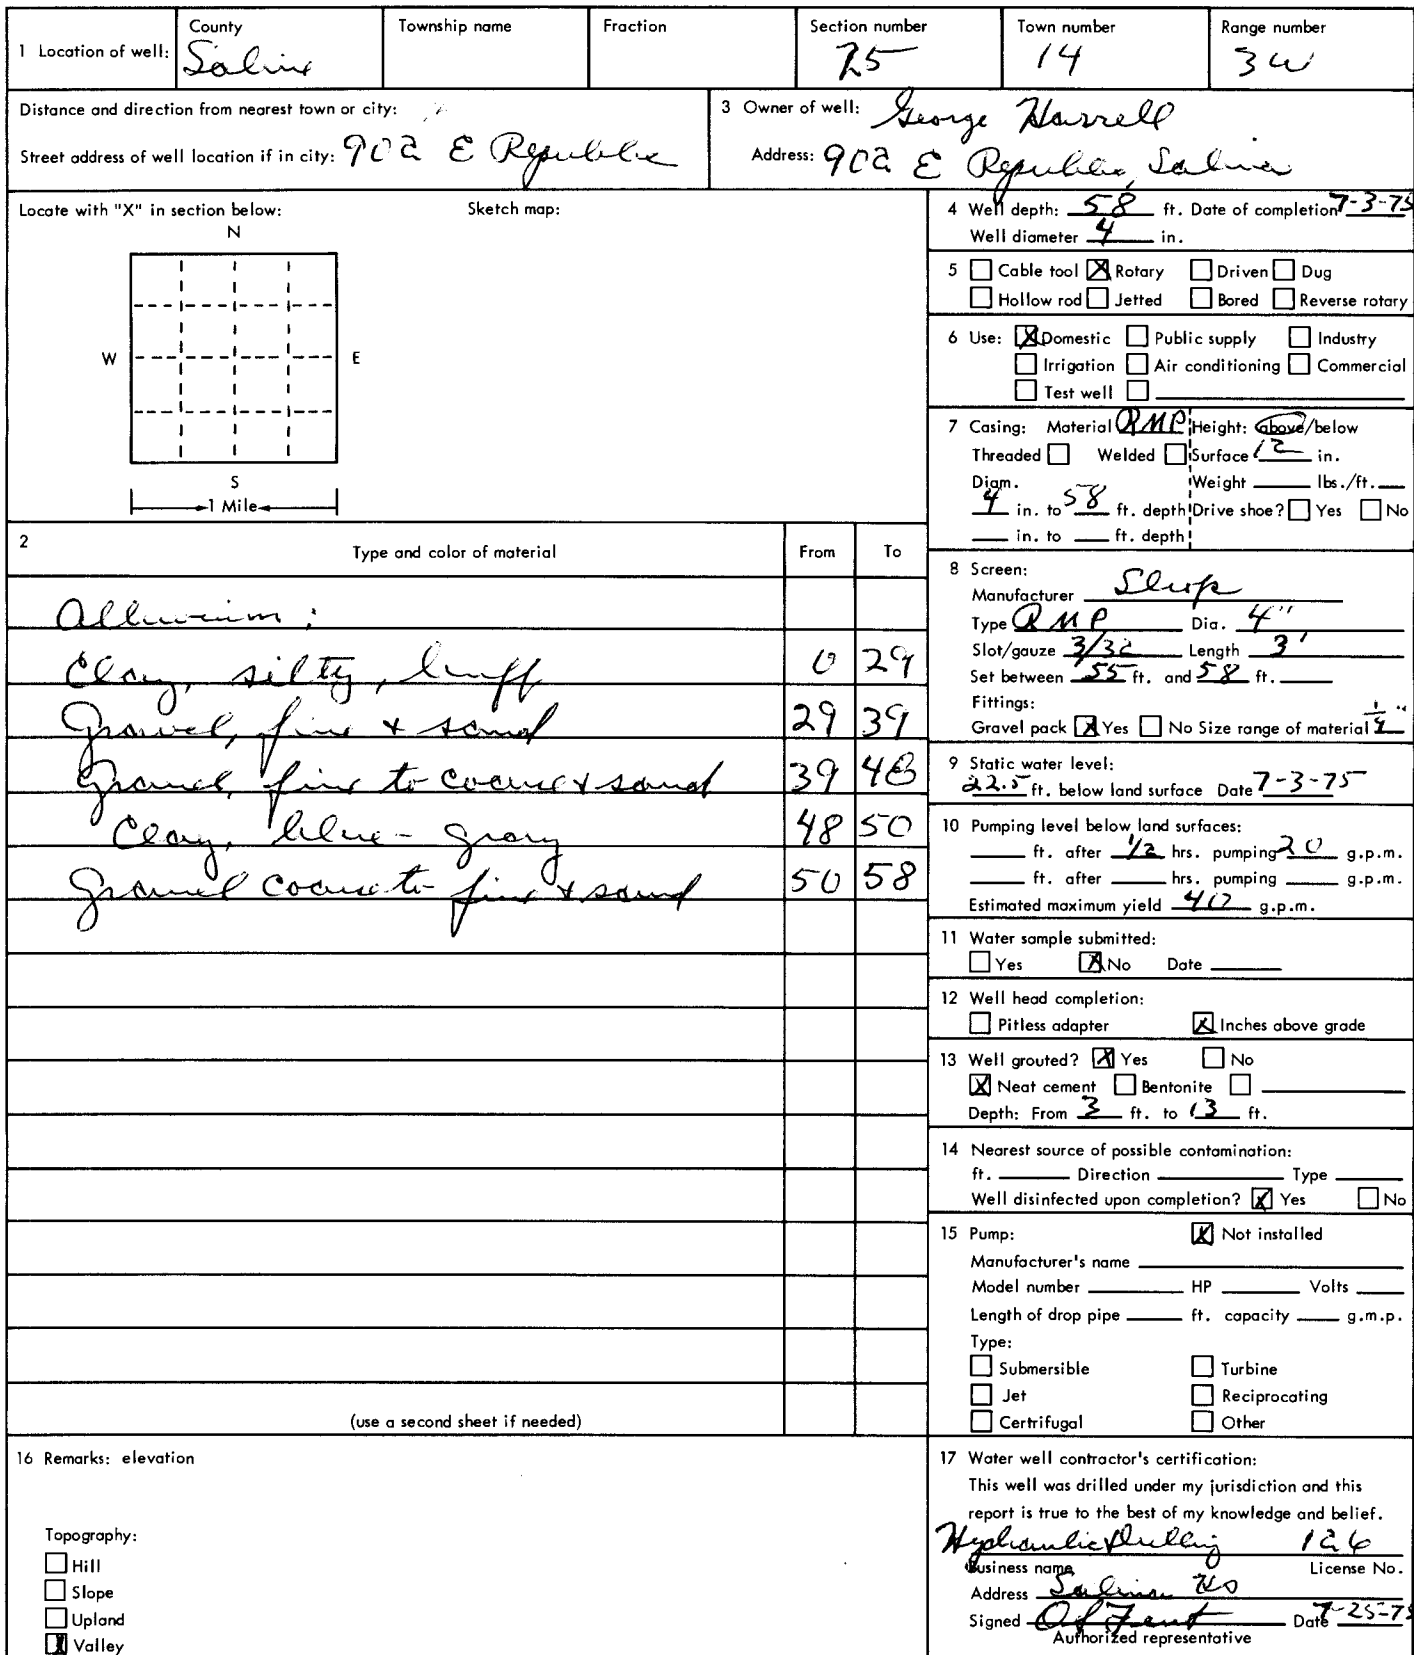 County Township name Fraction Section number Town number Range number
1 Location of well: Saline 25 14 3W
Distance and direction from nearest town or city:
Street address of well location if in city: 902 E Republic
3 Owner of well: George Harrell
Address: 902 E Republic, Salina
Locate with "X" in section below: Sketch map:
N
W E
S
1 Mile
4 Well depth: 58 ft. Date of completion 7-3-75
Well diameter 4 in.
5 Cable tool X Rotary Driven Dug
Hollow rod Jetted Bored Reverse rotary
6 Use: X Domestic Public supply Industry
Irrigation Air conditioning Commercial
Test well
7 Casing: Material RMP Height: above/below
Threaded Welded Surface 12 in.
Diam. Weight lbs./ft.
4 in. to 58 ft. depth Drive shoe? Yes No
in. to ft. depth
2 Type and color of material From To
Alluvium:
Clay, silty, buff 0 29
Gravel, fine + sand 29 39
Gravel, fine to coarse + sand 39 48
Clay, blue-gray 48 50
Gravel coarse to fine + sand 50 58
(use a second sheet if needed)
8 Screen:
Manufacturer Shop
Type RMP Dia. 4"
Slot/gauze 3/32 Length 3'
Set between 55 ft. and 58 ft.
Fittings:
Gravel pack X Yes No Size range of material 1/4"
9 Static water level:
22.5 ft. below land surface Date 7-3-75
10 Pumping level below land surfaces:
ft. after 1/2 hrs. pumping 20 g.p.m.
ft. after hrs. pumping g.p.m.
Estimated maximum yield 40 g.p.m.
11 Water sample submitted:
Yes X No Date
12 Well head completion:
Pitless adapter X Inches above grade
13 Well grouted? X Yes No
X Neat cement Bentonite
Depth: From 3 ft. to 13 ft.
14 Nearest source of possible contamination:
ft. Direction Type
Well disinfected upon completion? X Yes No
15 Pump: X Not installed
Manufacturer's name
Model number HP Volts
Length of drop pipe ft. capacity g.m.p.
Type:
Submersible Turbine
Jet Reciprocating
Certrifugal Other
16 Remarks: elevation
Topography:
Hill
Slope
Upland
X Valley
17 Water well contractor's certification:
This well was drilled under my jurisdiction and this
report is true to the best of my knowledge and belief.
Hydraulic Drilling 126
Business name License No.
Address Salina Ks
Signed Date 7-25-75
Authorized representative